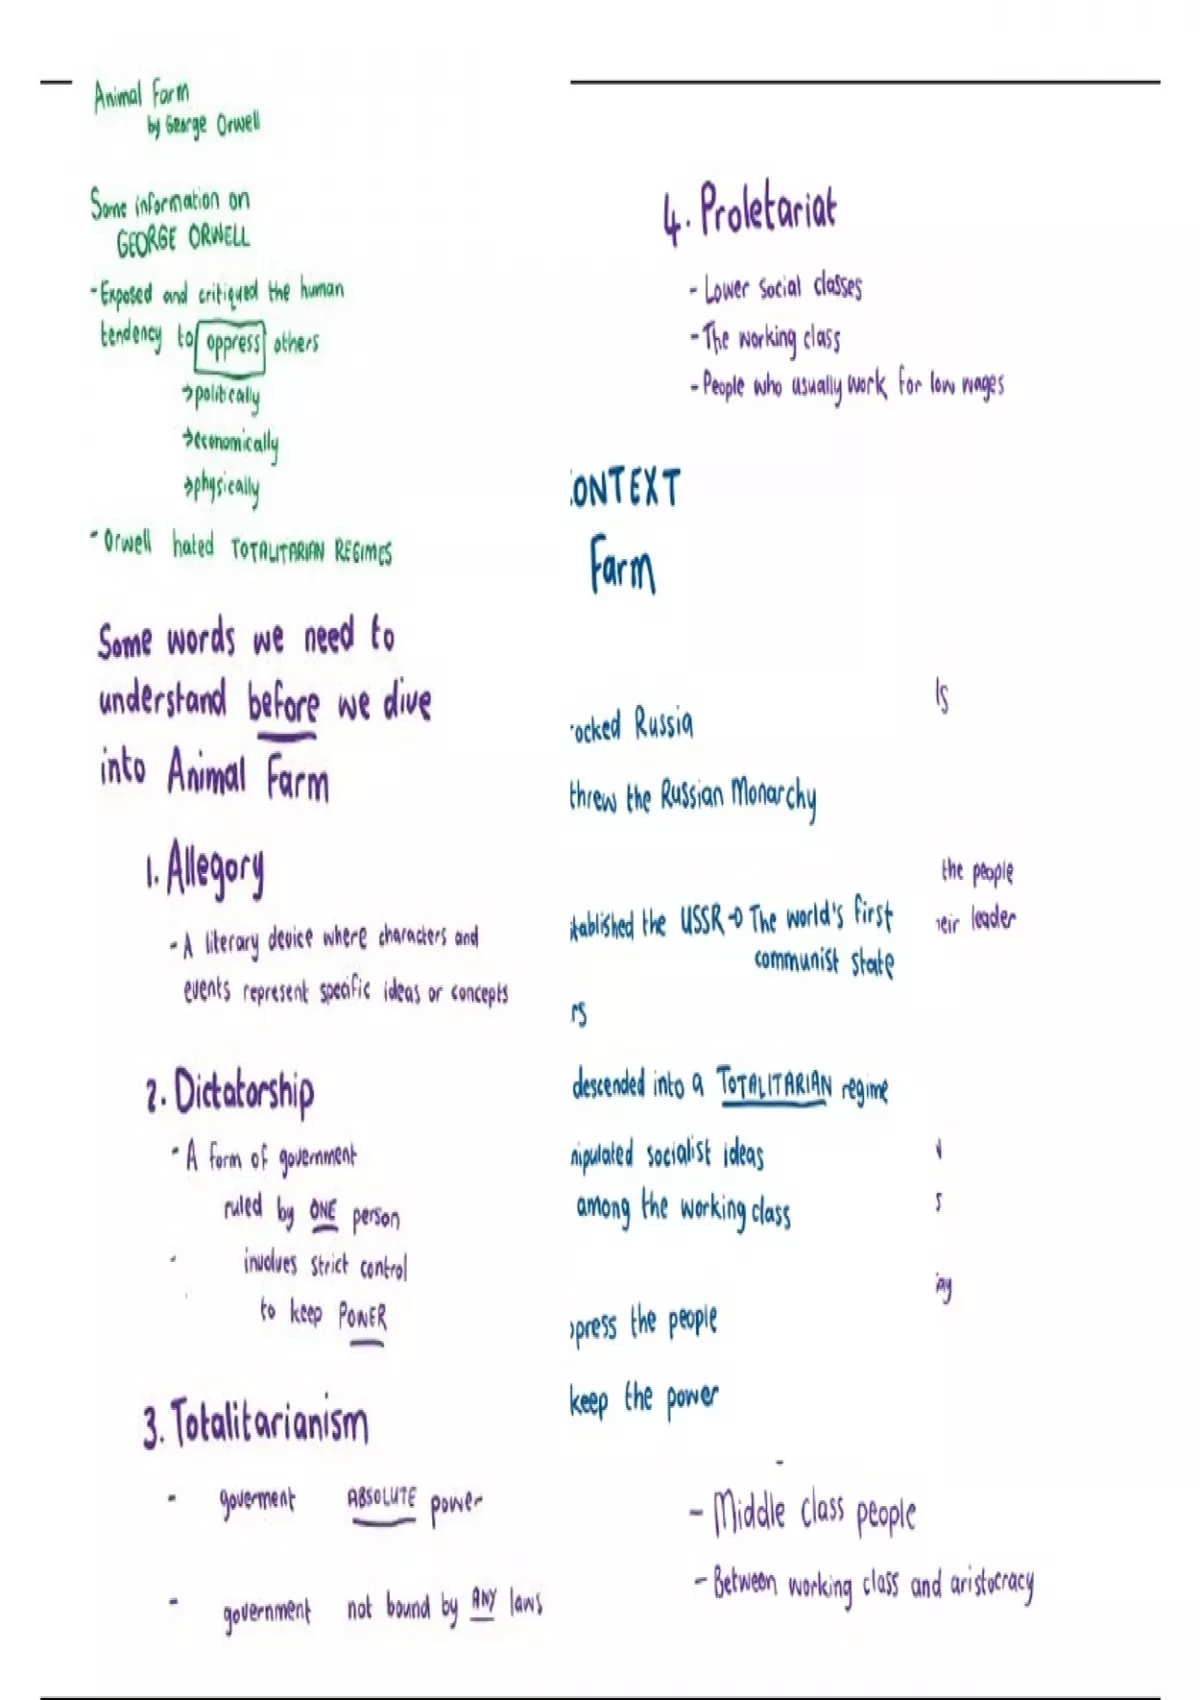 Animal Farm
by George Orwell
Some information on
GEORGE ORWELL
- Exposed and critiqued the human
tendency to oppress others
→ politically
→ economically
→ physically
- Orwell hated TOTALITARIAN REGIMES
Some words we need to
understand before we dive
into Animal Farm
1. Allegory
- A literary device where characters and
events represent specific ideas or concepts
2. Dictatorship
- A form of government
ruled by ONE person
- involves strict control
to keep POWER
3. Totalitarianism
- goverment ABSOLUTE power
- government not bound by ANY laws
4. Proletariat
- Lower social classes
- The working class
- People who usually work for low wages
ONTEXT
Farm
ls
ocked Russia
threw the Russian Monarchy
the people
eir leader
tablished the USSR → The world's first
communist state
rs
descended into a TOTALITARIAN regime
nipulated socialist ideas
among the working class
s
press the people
keep the power
-
- Middle class people
- Between working class and aristocracy